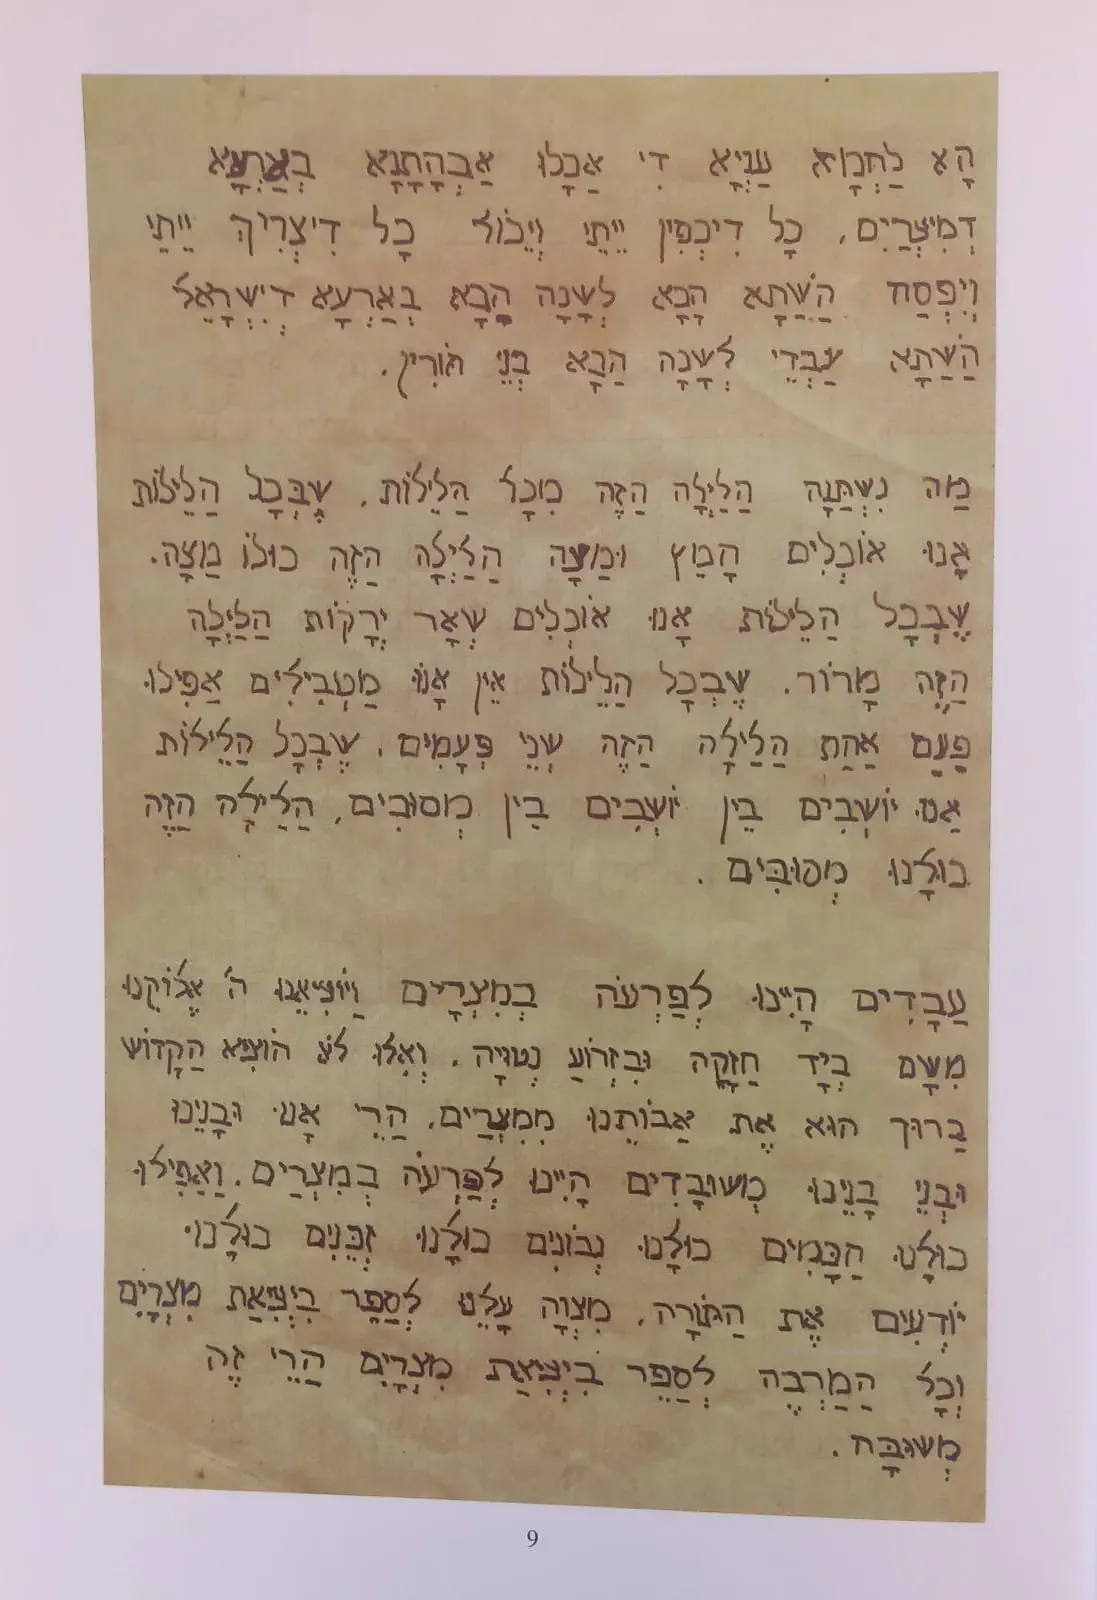 הָא לַחְמָא עַנְיָא דִי אַכָלוּ אַבְהָתָנָא בְּאַרְעָא
דְמִיצְרַיִם. כָל דִיכְפִין יֵיתֵי וְיֵכוֹל כָל דִיצְרִיךְ יֵיתֵי
וְיִפְסַח הַשַׁתָא הָכָא לְשָנָה הַבָא בְּאַרְעָא דְיִשְרָאֵל
הַשַׁתָא עַבְדֵי לְשָנָה הַבָא בְּנֵי חוֹרִין.
מַה נִשְׁתַּנָה הַלַיְלָה הַזֶה מִכָל הַלֵילוֹת. שֶבְּכָל הַלֵילוֹת
אָנוּ אוֹכְלִים חָמֵץ וּמַצָה הַלַיְלָה הַזֶה כוּלוֹ מַצָה.
שֶבְּכָל הַלֵילוֹת אָנוּ אוֹכְלִים שְאָר יְרָקוֹת הַלַיְלָה
הַזֶה מָרוֹר. שֶבְּכָל הַלֵילוֹת אֵין אָנוּ מַטְבִילִים אַפִילוּ
פַעַם אַחַת הַלַיְלָה הַזֶה שְנֵי פְּעָמִים. שֶבְּכָל הַלֵילוֹת
אָנוּ יוֹשְבִים בֵין יוֹשְבִים בֵין מְסוּבִים, הַלַיְלָה הַזֶה
כוּלָנוּ מְסוּבִּים.
עַבָדִים הָיִינוּ לְפַרְעֹה בְּמִצְרָיִם וַיוֹצִיאֵנוּ ה' אֱלוֹקֵנוּ
מִשָם בְּיָד חַזָקָה וּבִזְרוֹעַ נְטוּיָה. וְאִלוּ לֹא הוֹצִיא הַקָדוֹש
בַרוּךְ הוּא אֶת אַבוֹתֵנוּ מִמִצְרַיִם. הַרֵי אָנוּ וּבָנֵינוּ
וּבְנֵי בָנֵינוּ מְשוּבָדִים הָיִינוּ לְפַרְעֹה בְּמִצְרַיִם. וַאַפִילוּ
כוּלָנוּ חַכָמִים כוּלָנוּ נְבוֹנִים כוּלָנוּ זְקֵנִים כוּלָנוּ
יוֹדְעִים אֶת הַתוֹרָה. מִצְוָה עָלֵנוּ לְסַפֵר בִיצִיאַת מִצְרָיִם
וְכָל הַמַרְבֶה לְסַפֵר בִיְצִיאַת מִצְרָיִם הַרֵי זֶה
מְשוּבָּח.
9